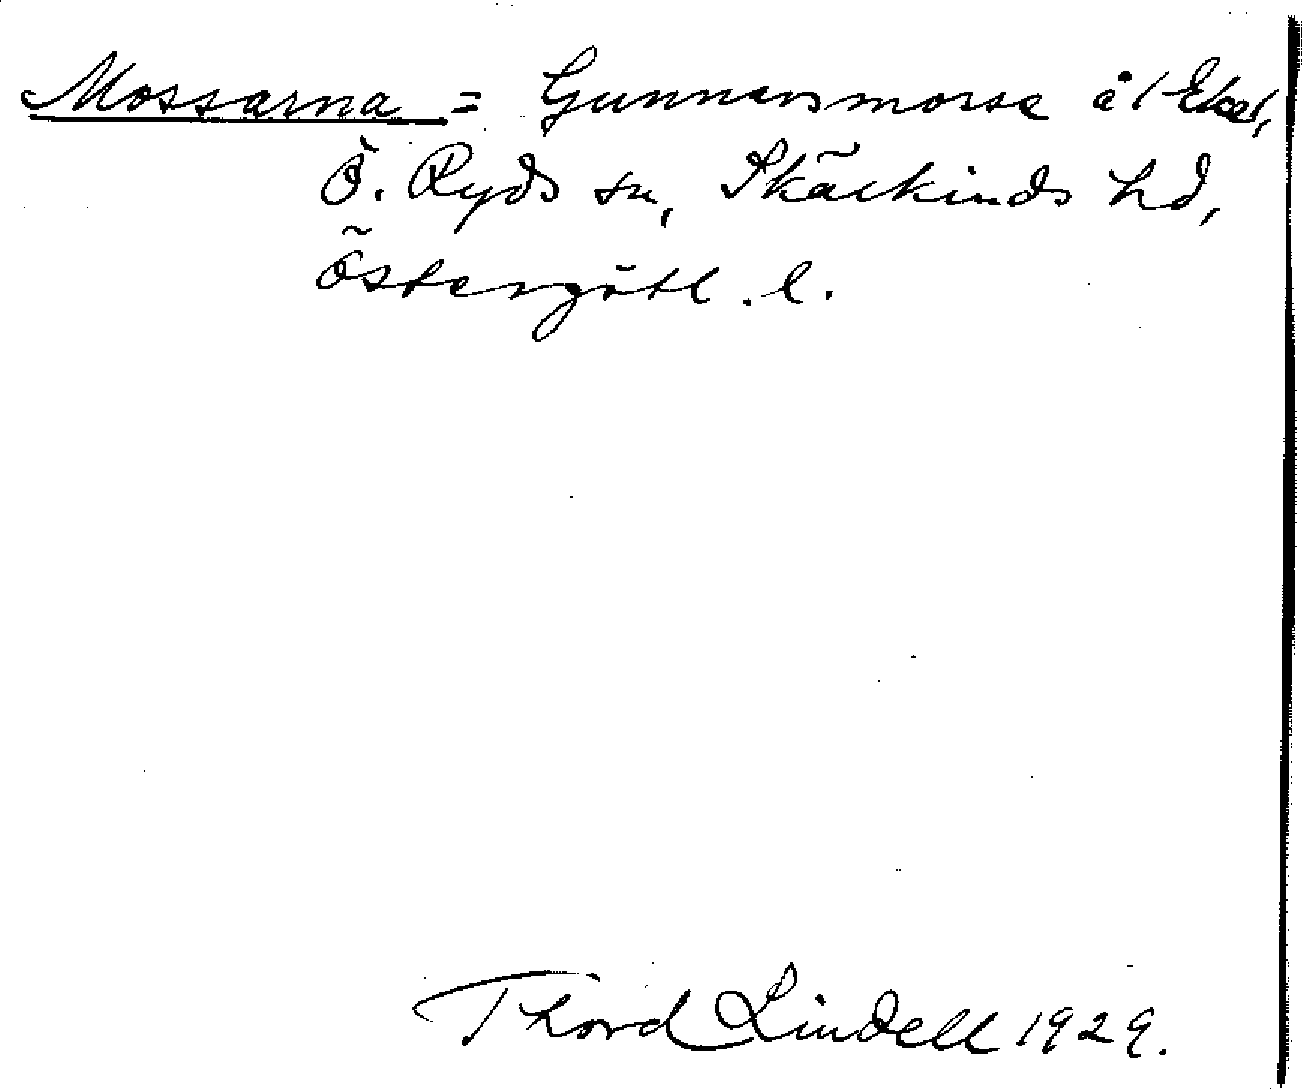 Mossarna = Gunnarsmosse å 1 Eket,
Ö. Ryds sn, Skärkinds hd,
Östergötl. l.
Thord Lindell 1929.